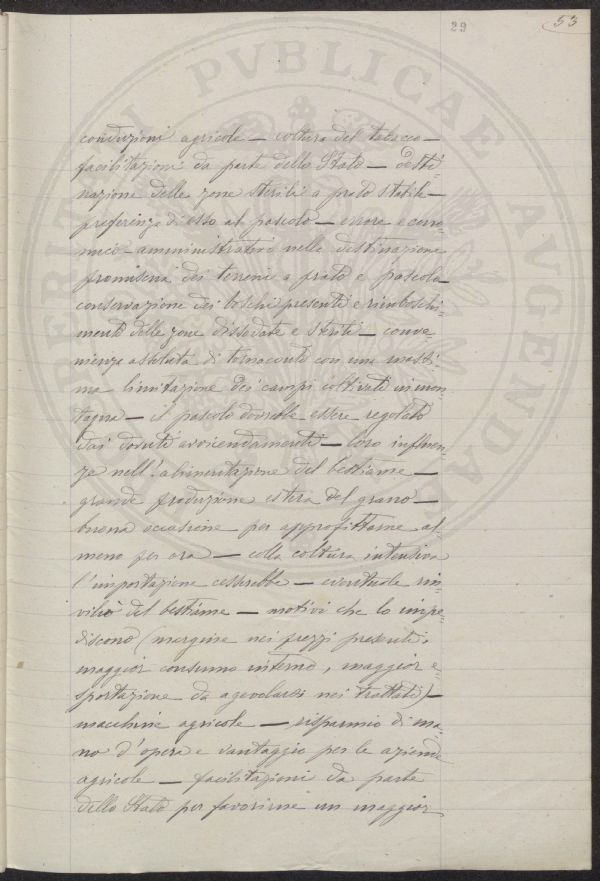 29
53
conduzioni agricole — coltura del tabacco —
facilitazioni da parte dello Stato — desti-
nazione delle zone sterili a prato stabile —
preferenza di esso al pascolo — errore econo-
mico-amministrativo nelle destinazione
promiscua dei terreni a prato e pascolo —
conservazione dei boschi presenti e rimboschi-
mento delle zone dissodate e sterili — conve-
nienza assoluta di tornaconto con una massi-
ma limitazione dei campi coltivati in mon-
tagna — il pascolo dovrebbe essere regolato
dai dovuti avvicendamenti — loro influen-
ze nell'alimentazione del bestiame —
grande produzione estera del grano —
buona occasione per approfittarne al-
meno per ora — colla coltura intensiva
l'importazione cesserebbe — eventuale rin-
vilio del bestiame — motivi che lo impe-
discono (margine nei prezzi presenti,
maggior consumo interno, maggior e-
sportazione da agevolarsi nei trattati) —
macchine agricole — risparmio di ma-
no d'opera e vantaggio per le aziende
agricole — facilitazioni da parte
dello Stato per favorirne un maggior
PERITI PVBLICAE AVGENDAE